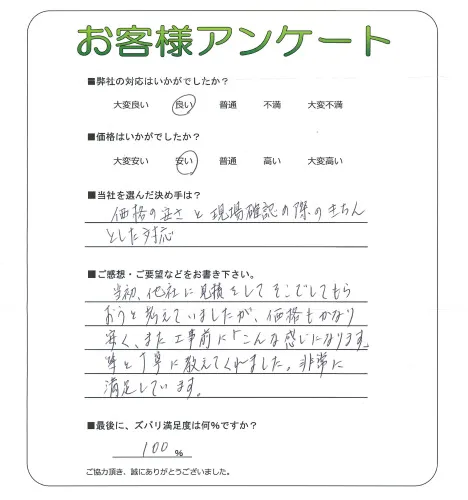 お客様アンケート
■弊社の対応はいかがでしたか？
大変良い 良い 普通 不満 大変不満
■価格はいかがでしたか？
大変安い 安い 普通 高い 大変高い
■当社を選んだ決め手は？
価格の安さと現場確認の際のきちん
とした対応
■ご感想・ご要望などをお書き下さい。
当初、他社に見積をしてそこでしてもら
おうと考えていましたが、価格もかなり
安く、また工事前に「こんな感じになります。
等と丁寧に教えてくれました。非常に
満足しています。
■最後に、ズバリ満足度は何%ですか？
100 %
ご協力頂き、誠にありがとうございました。